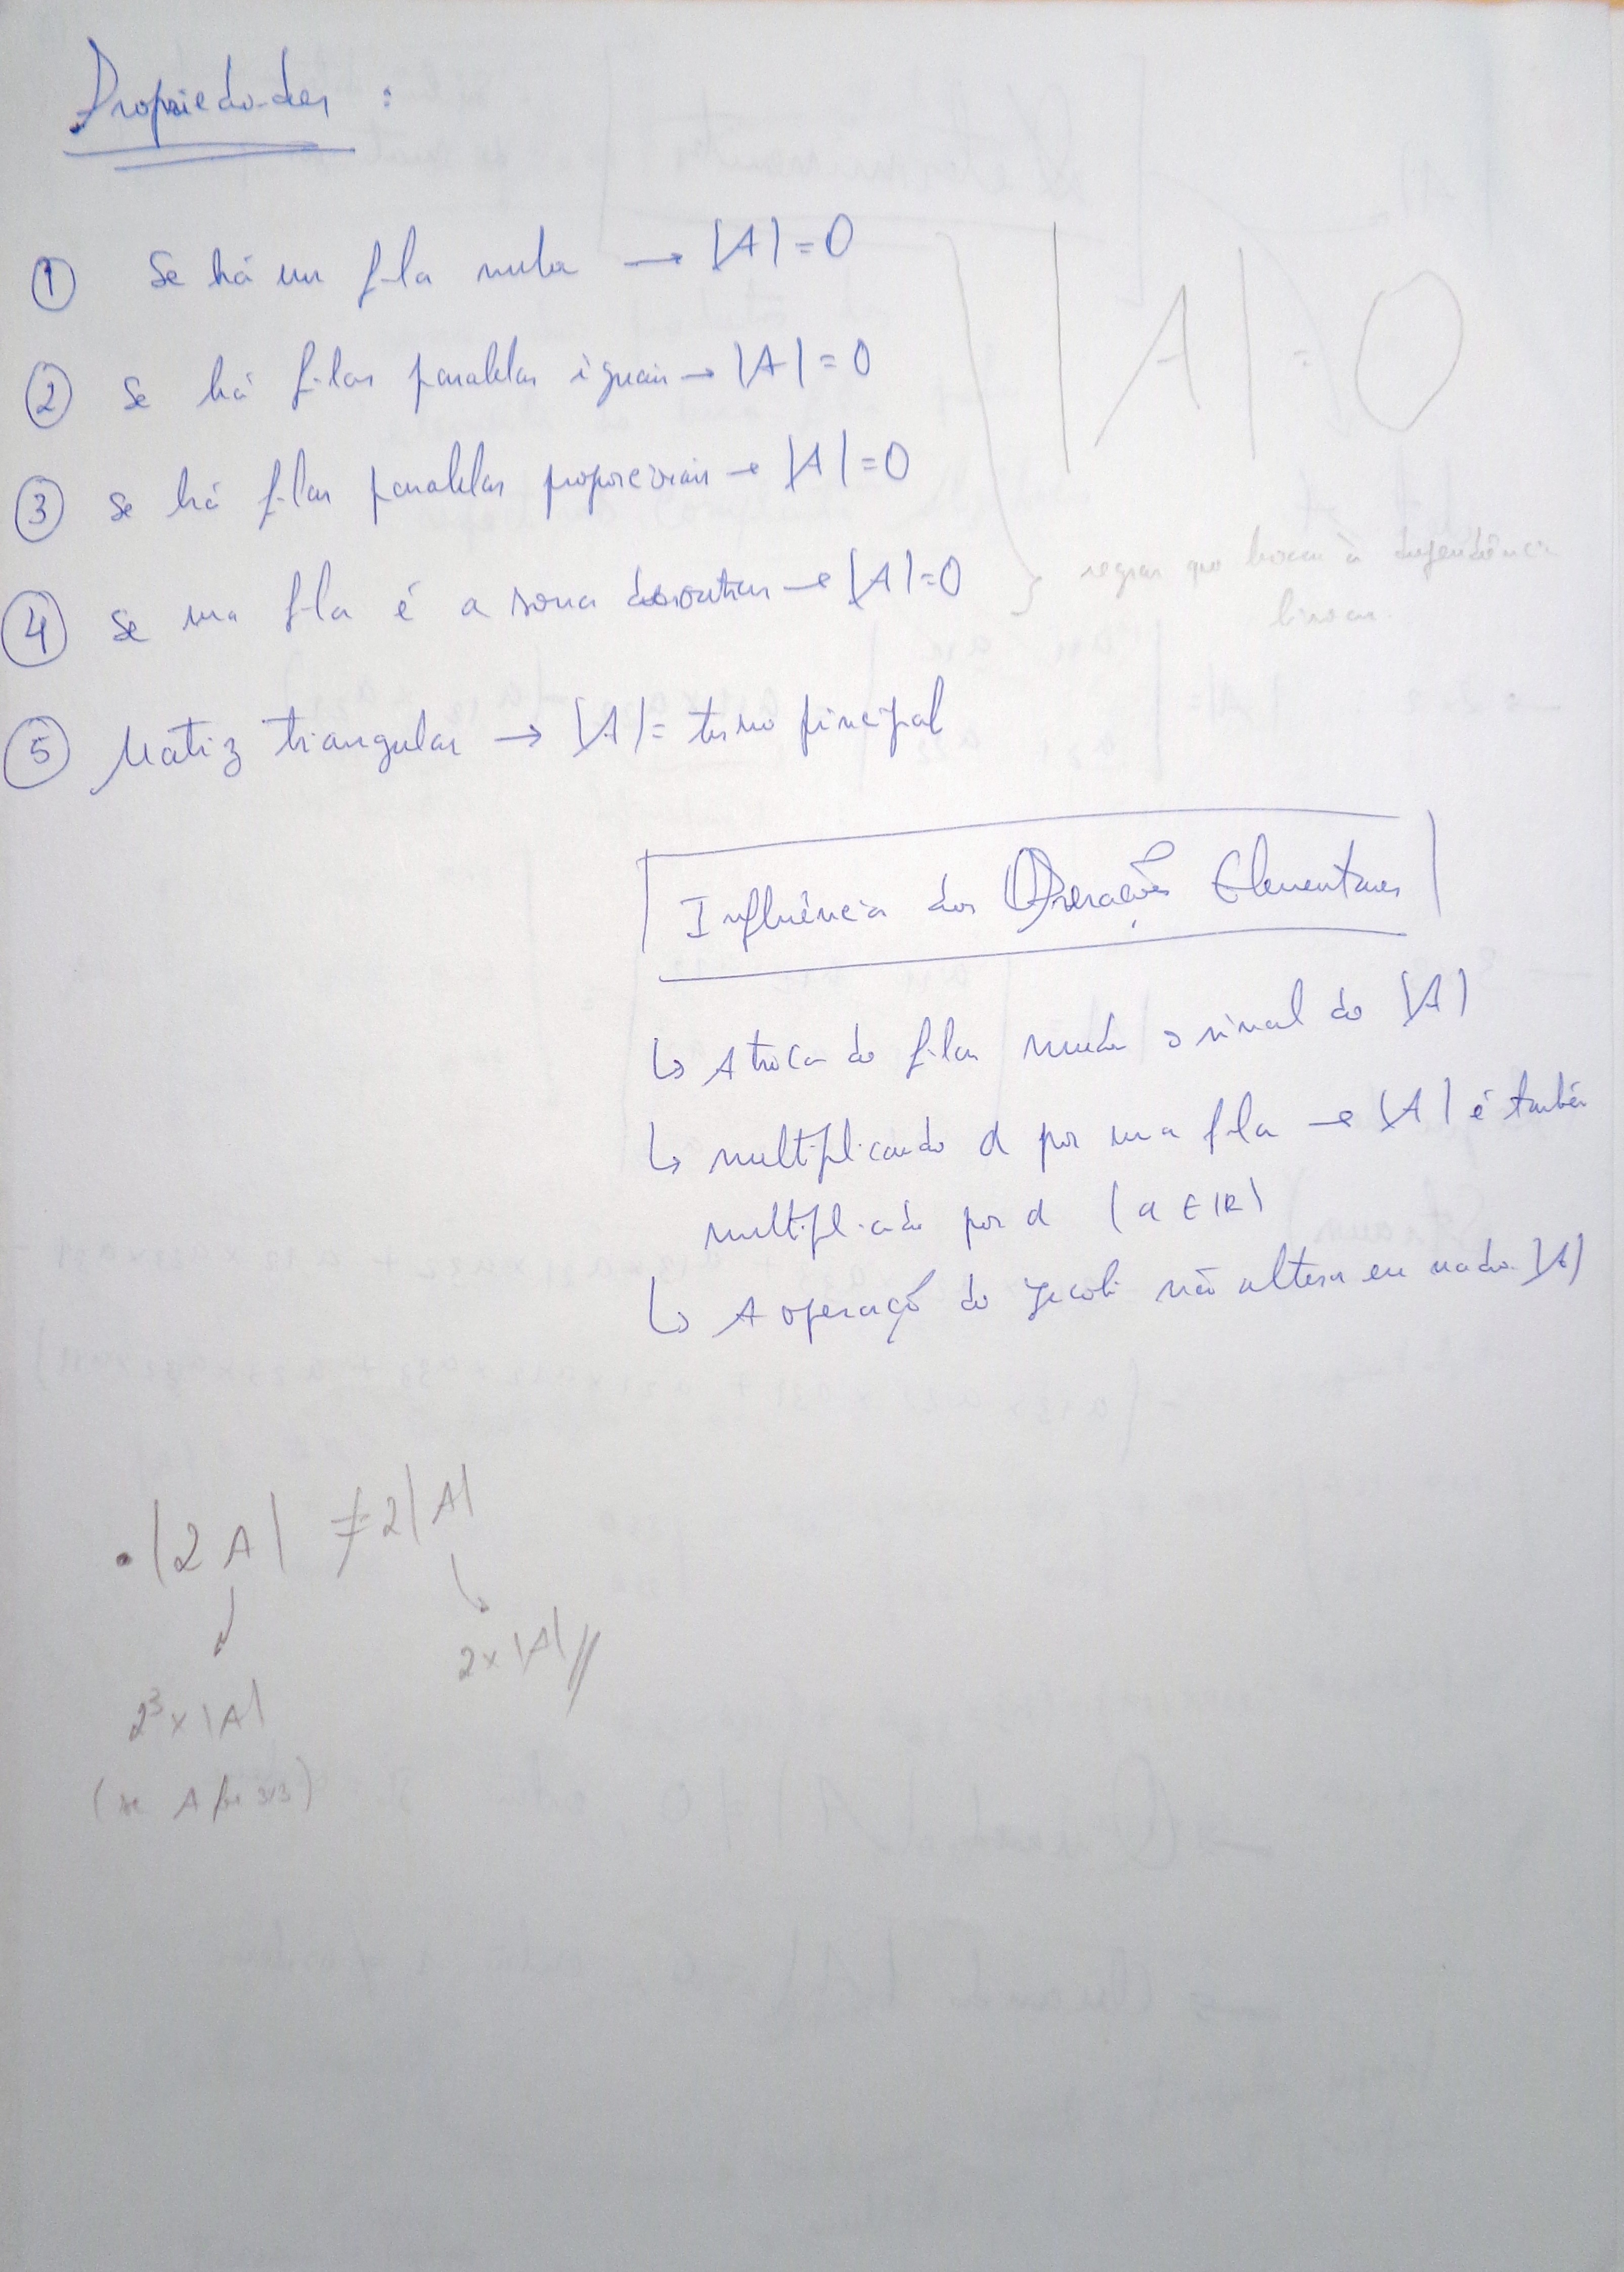 Propriedades :
① Se há um fila nula → |A| = 0
② Se há filas paralelas iguais → |A| = 0
③ Se há filas paralelas proporcionais → |A| = 0
④ Se uma fila é a soma de outras → |A| = 0
|A| = 0
} regras que levam à dependência
linear.
⑤ Matriz triangular → |A| = termo principal
Influência das Operações Elementares
↳ A troca de filas muda o sinal do |A|
↳ multiplicando α por uma fila → |A| é também
multiplicado por α (α ∈ IR)
↳ A operação de Jacobi não altera em nada |A|
• |2A| ≠ 2|A|
2³ x |A|
2 x |A| //
(se A for 3x3)